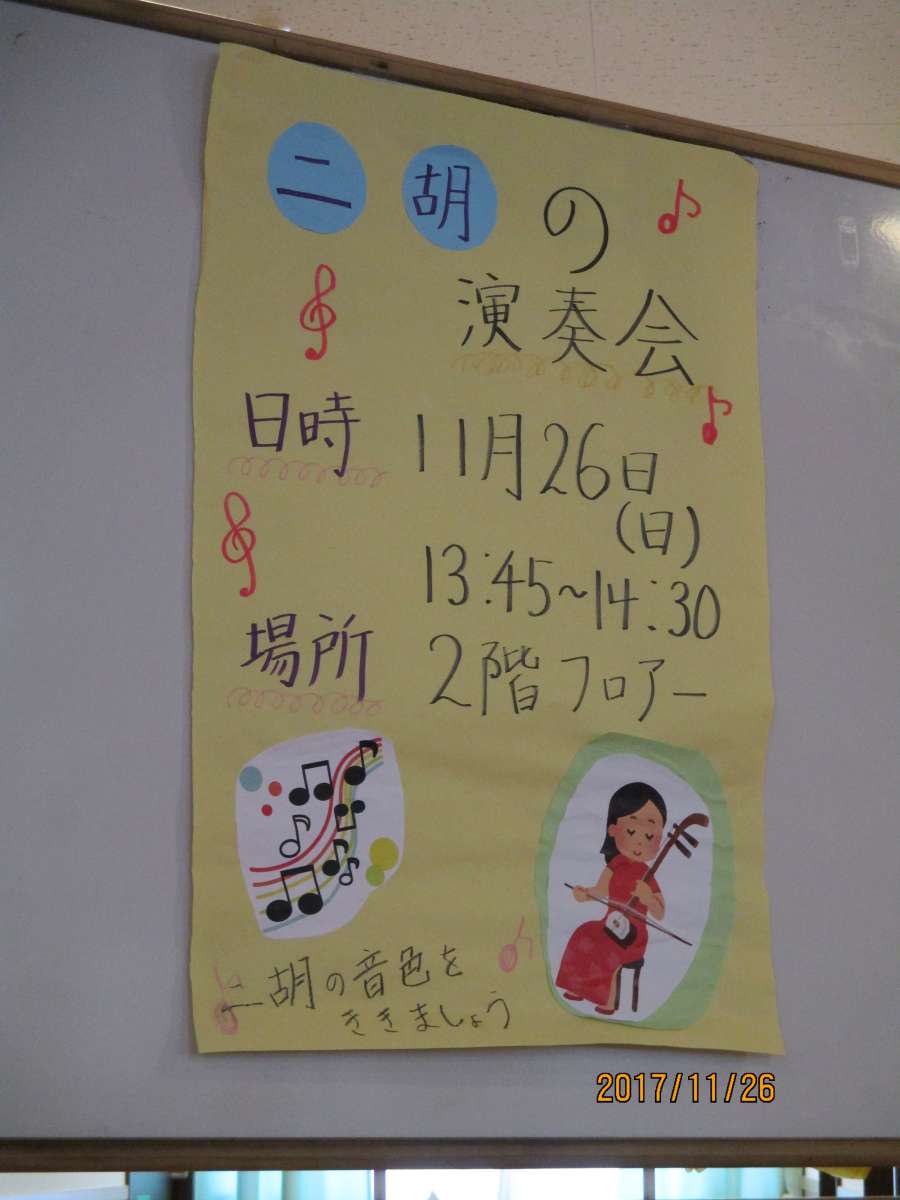 二胡の
演奏会
日時 11月26日
(日)
13:45~14:30
場所 2階フロアー
二胡の音色を
ききましょう
2017/11/26